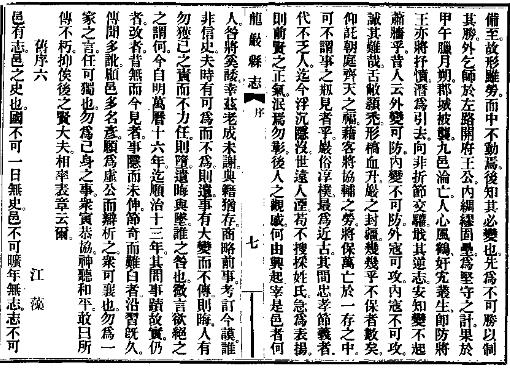 備至故形雖勞而中不動焉後知其必變也先為不可勝以制
其勝外乞師於左路開府王公內綢繆固壘為堅守之計果於
甲午臘月朔郡城被襲九邑淪亡人心風鶴奸宄叢生卽防將
王亦將抒憤潛為引去向非折節交驩戢其逆志安知變不起
蕭牆乎昔人云外變可防內變不可防外寇可攻內寇不可攻
誠其難哉舌敝頴禿形槁血升巖之封疆幾幾乎不保者數矣
仰託朝庭齊天之福藉客將協輔之勞將保萬亡於一存之中
可不謂事之瓶見者乎巖俗淳樸最為近古其間忠孝節義者
代不乏人迄今浮沉隱沒世遠人湮苟不搜採姓氏急為表揚
則前賢之正氣泯焉勿彰後人之觀感何由興起宰是邑者何
龍巖縣志 序 七
人咎將奚諉幸茲老成未謝典籍猶存商略前事考訂今謨誰
非信史夫時有可為而不為則遺事有大變而不傳則晦人有
勿獲已之責而不力任則墮遺晦與墮誰之咎也微言欲絕之
之謂何今自明萬曆十六年迄順治十三年其間事蹟故實仍
者改者昔無而今見者事隱而未伸節奇而難白者沿習旣久
傳聞多訛顧邑多名彥願為虛公而辯析之衆可襄也勿為一
家之言任可獨也勿為己身之事衆寅恭協神聽和平敢曰所
傳不朽抑俟後之賢大夫相率表章云爾
舊序六 江藻
邑有志邑之史也國不可一日無史邑不可曠年無志志不可